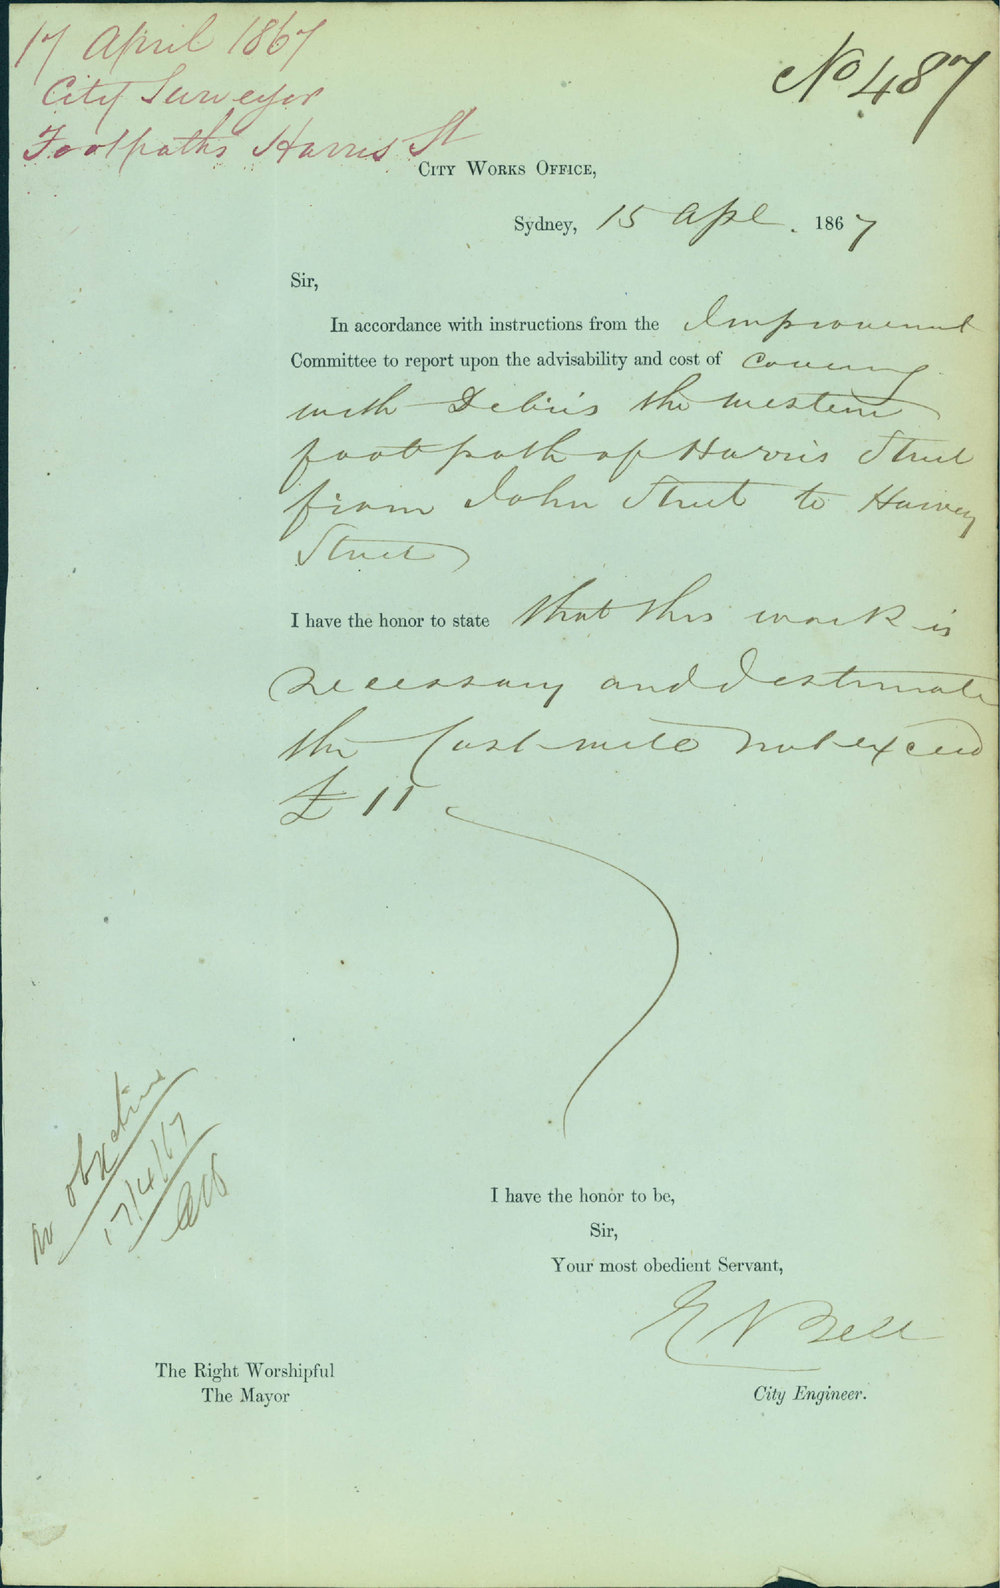 17 April 1867
City Surveyor
Footpaths Harris St
No 487
CITY WORKS OFFICE,
Sydney, 15 Apl. 1867
Sir,
In accordance with instructions from the Improvement
Committee to report upon the advisability and cost of Covering
with Debris the western
footpath of Harris Street
from John Street to Harvey
Street
I have the honor to state that this work is
necessary and I estimate
the Cost will not exceed
£11
No objection
17/4/67
I have the honor to be,
Sir,
Your most obedient Servant,
E Bell
The Right Worshipful
The Mayor
City Engineer.